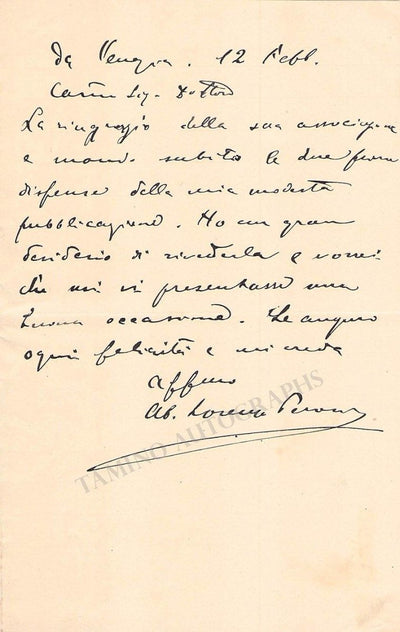 da Venezia. 12 Febb.
Carm Sig. Dottore
La ringrazio della sua associazione
e mando subito le due prime
dispense della mia modesta
pubblicazione. Ho un gran
desiderio di rivederla e vorrei
che mi si presentasse una
buona occasione. Le auguro
ogni felicità e mi creda
affmo
Ab. Lorenzo Perosi
TAMINO AUTOGRAPHS